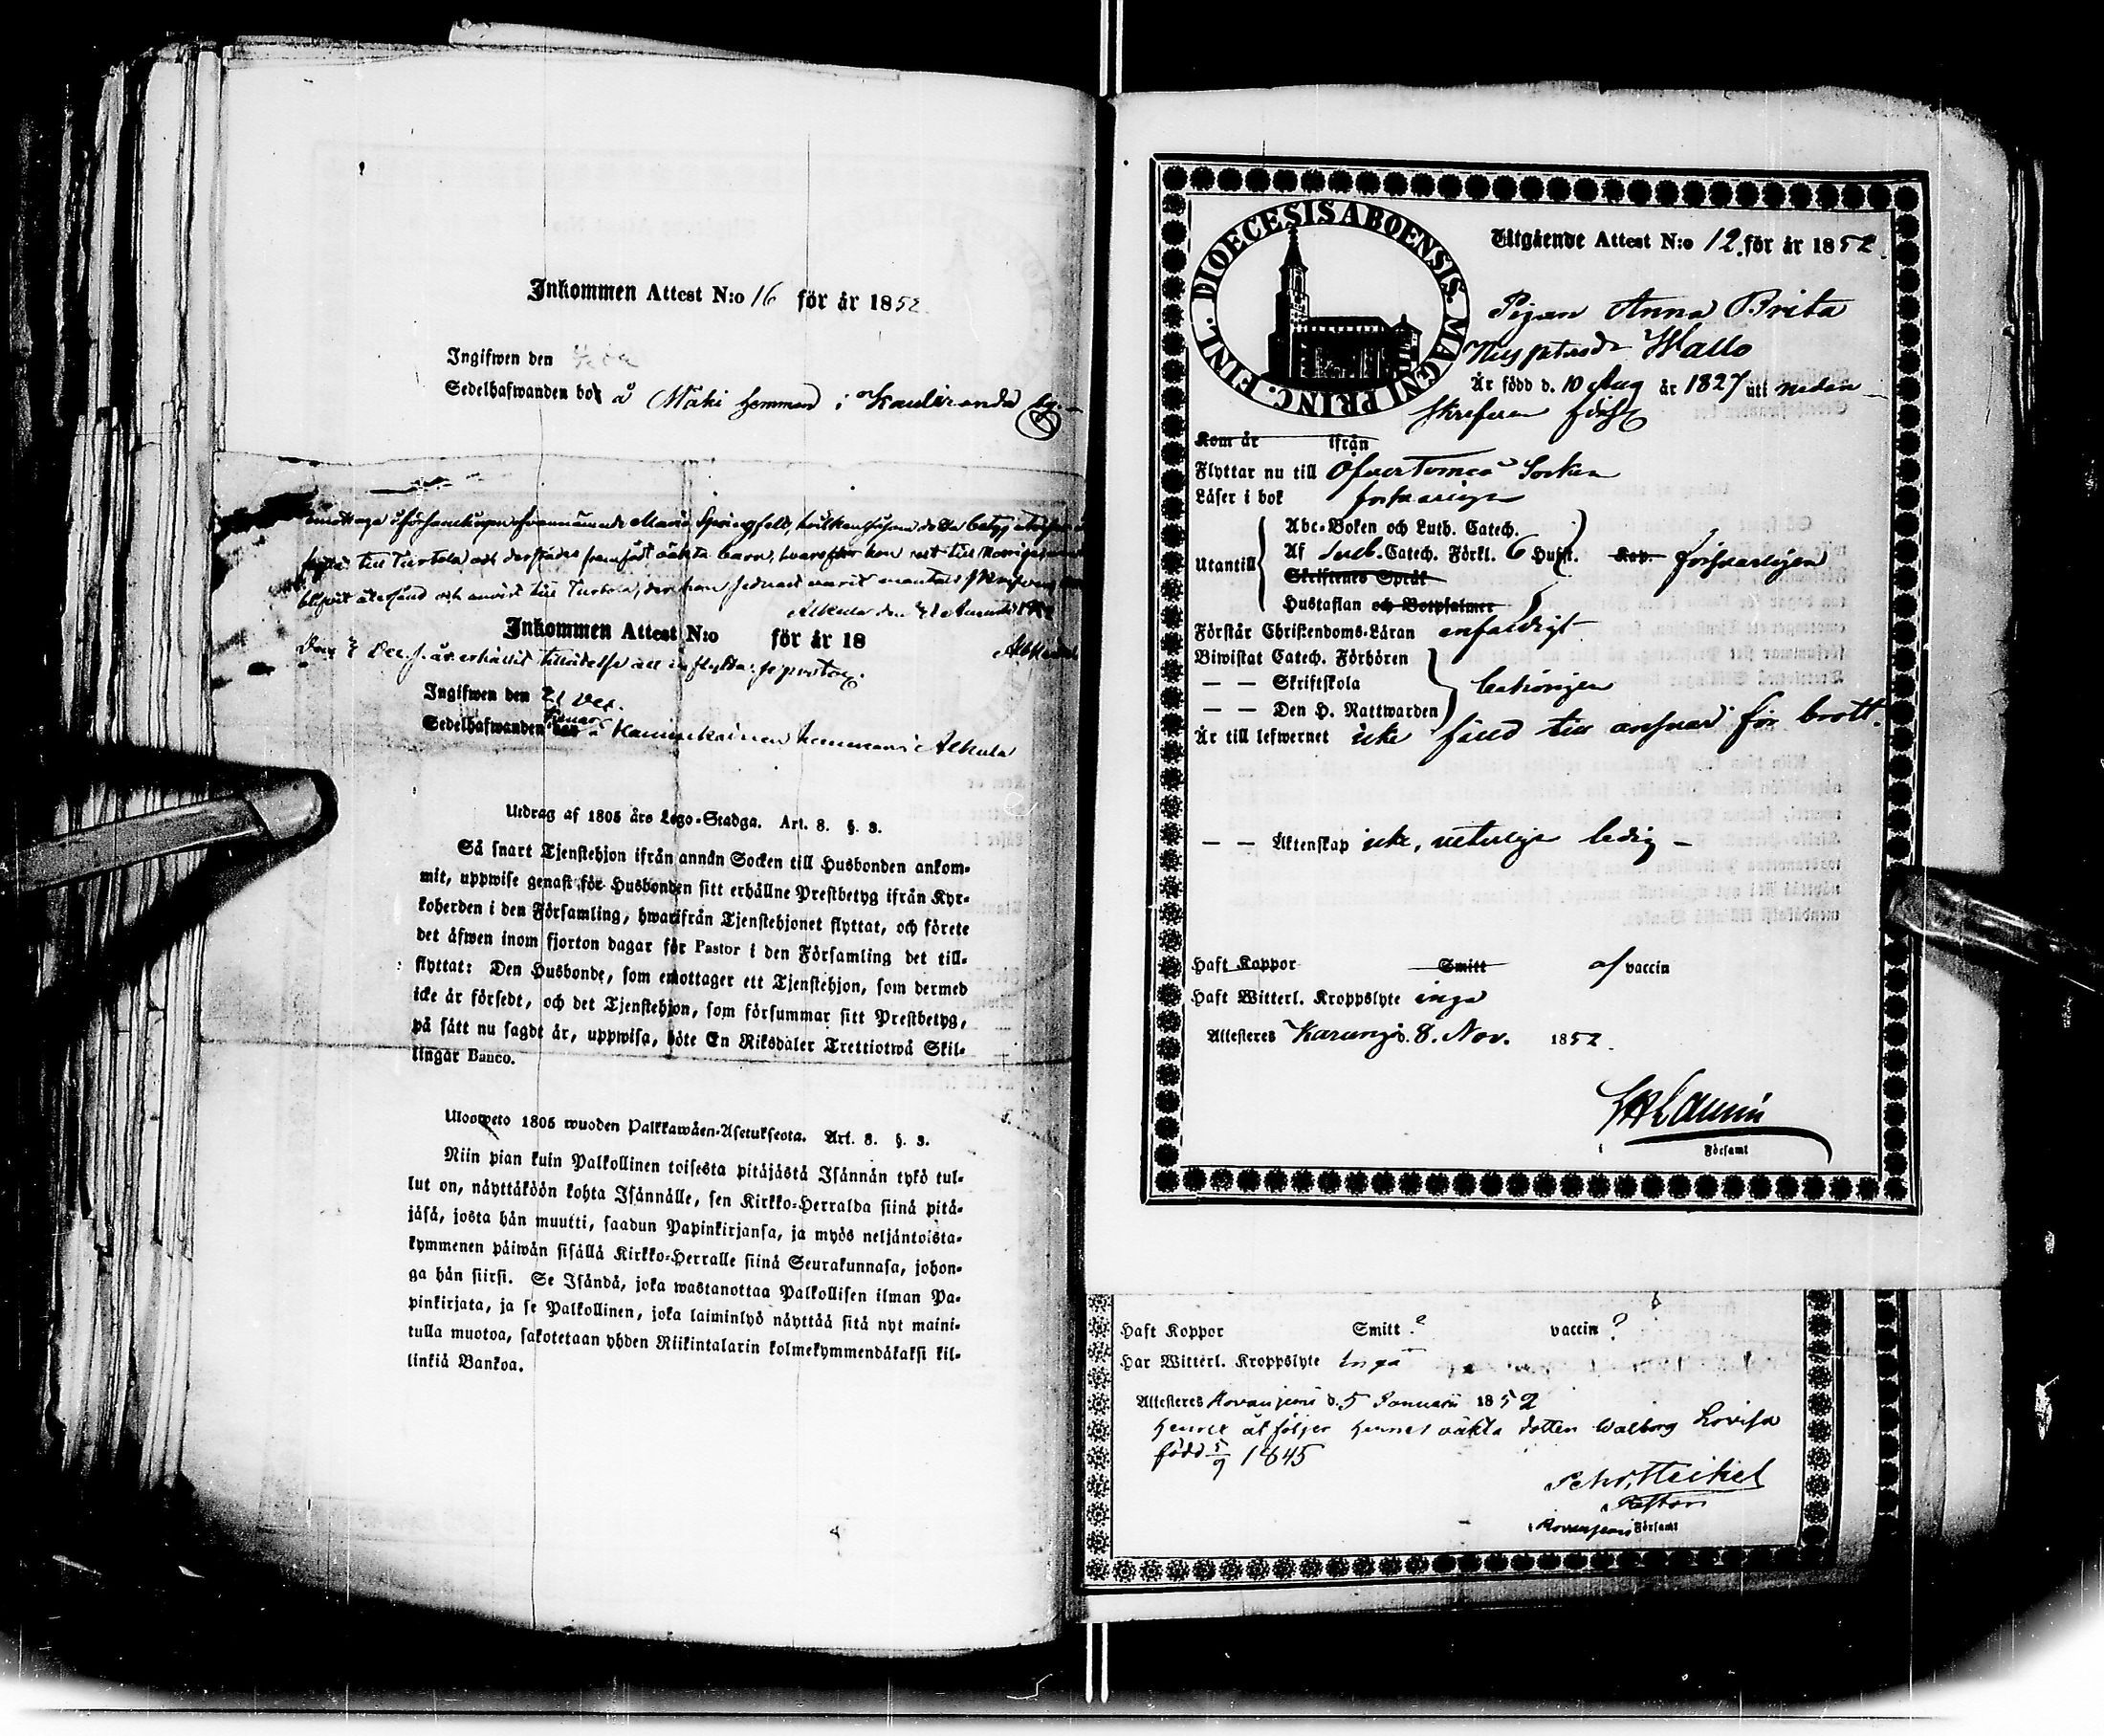 Inkommen Attest N:o 16 för år 1852.
Ingifwen den
Sedelhafwanden bor å Mäki hemman i Kauliranda by.
emottaga i församlingen ofvannämnde Maria Springfelt, hvilken
till Turtola och derstädes framfödt oäkta barn, hvarefter hon rest till Norrige
blifvit återsänd och anvist till Turtola, der hon sedan varit mantals skrifven,
Alkula den
Inkommen Attest N:o för år 18
Den Dec. s. år erhållit tillåtelse att inflytta:
Ingifwen den 21 Dec.
Sedelhafwanden å Kauniskainen hemman i Alkula
Utdrag af 1805 års Lego-Stadga. Art. 8. §. 3.
Så snart Tjenstehjon ifrån annan Socken till Husbonden ankom-
mit, uppwise genast för Husbonden sitt erhållne Prestbetyg ifrån Kyr-
koherden i den Församling, hwarifrån Tjenstehjonet flyttat, och förete
det äfwen inom fjorton dagar för Pastor i den Församling det till-
flyttat: Den Husbonde, som emottager ett Tjenstehjon, som dermed
icke är försedt, och det Tjenstehjon, som försummar sitt Prestbetyg,
på sätt nu sagdt är, uppwisa, böte En Riksdaler Trettiotwå Skil-
lingar Banco.
Ulosweto 1805 wuoden Palkkawäen-Asetuksesta. Art. 8. §. 3.
Niin pian kuin Palkollinen toisesta pitäjästä Isännän tykö tul-
lut on, näyttäköön kohta Isännälle, sen Kirkko-Herralda siinä pitä-
jäsä, josta hän muutti, saadun Papinkirjansa, ja myös neljäntoista-
kymmenen päiwän sisällä Kirkko-Herralle siinä Seurakunnasa, johon-
ga hän siirsi. Se Isändä, joka wastanottaa Palkollisen ilman Pa-
pinkirjata, ja se Palkollinen, joka laiminlyö näyttää sitä nyt maini-
tulla muotoa, sakotetaan yhden Riikintalarin kolmekymmendäkaksi kil-
linkiä Bankoa.
DIOECESIS ABOENSIS. MAGNI PRINC. FINL.
Utgående Attest N:o 12. för år 1852.
Pigan Anna Brita
Wallo
Är född d. 10 Aug år 1827 uti nedan-
skrefven förs.
Kom år ifrån
Flyttar nu till Öfver Torneå Socken
Läser i bok försvarligen
Abc-Boken och Luth. Catech.
Utantill Af Sveb. Catech. Förkl. 6 Hufst. Kap. försvarligen
Skriftenes Språk
Hustaflan och Botpsalmer
Förstår Christendoms-Läran enfaldigt
Biwistat Catech. Förhören
— — Skriftskola behörigen
— — Den H. Nattwarden
Är till lefwernet icke fälld till ansvar för brott.
— — Äktenskap icke, veterligen ledig -
Haft Koppor Smitt af vaccin
Haft Witterl. Kroppslyte inga
Attesteres Karungi d. 8. Nov. 1852.
Församl
Haft Koppor Smitt ? vaccin ?
Har Witterl. Kroppslyte inga
Attesteres Rovaniemi d. 5 Januarii 1852
Henne åtföljer hennes oäkta dotter Walborg Lovisa
född 5/9 1845
Heikel
Pastor
i Rovaniemi Församl